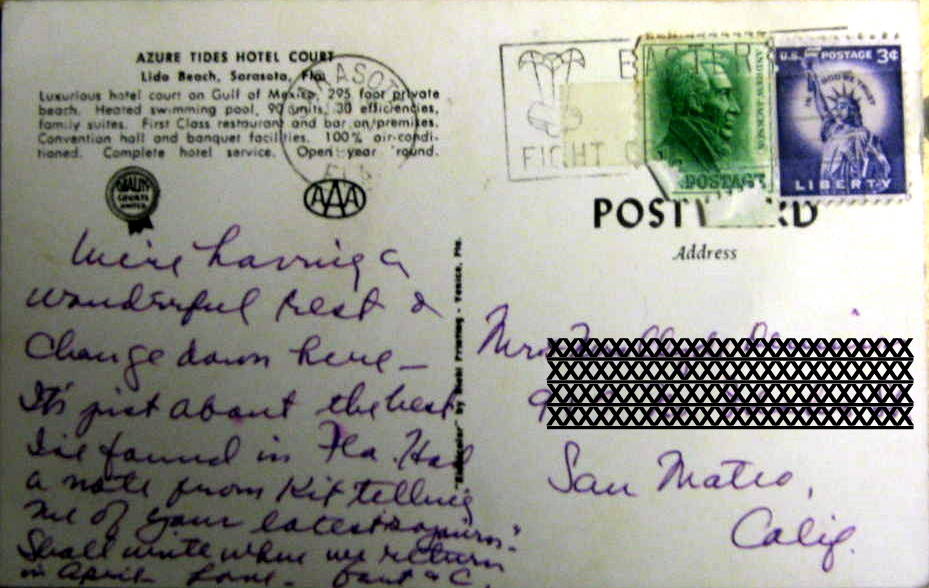 AZURE TIDES HOTEL COURT
Lido Beach, Sarasota, Fla.
Luxurious hotel court on Gulf of Mexico, 295 foot private
beach. Heated swimming pool, 90 units, 30 efficiencies,
family suites. First Class restaurant and bar on premises.
Convention hall and banquet facilities. 100% air-condi-
tioned. Complete hotel service. Open year 'round.
QUALITY
COURTS
UNITED
AAA
We're having a
wonderful rest &
change down here —
It's just about the best
I've found in Fla. Had
a note from Kit telling
me of your latest
Shall write when we return
in April - Love -
Venice, Fla.
EASTER
FIGHT
ANDREW JACKSON
POSTAGE
U.S. POSTAGE 3¢
IN GOD WE TRUST
LIBERTY
POST RD
Address
Mrs.
San Mateo,
Calif.